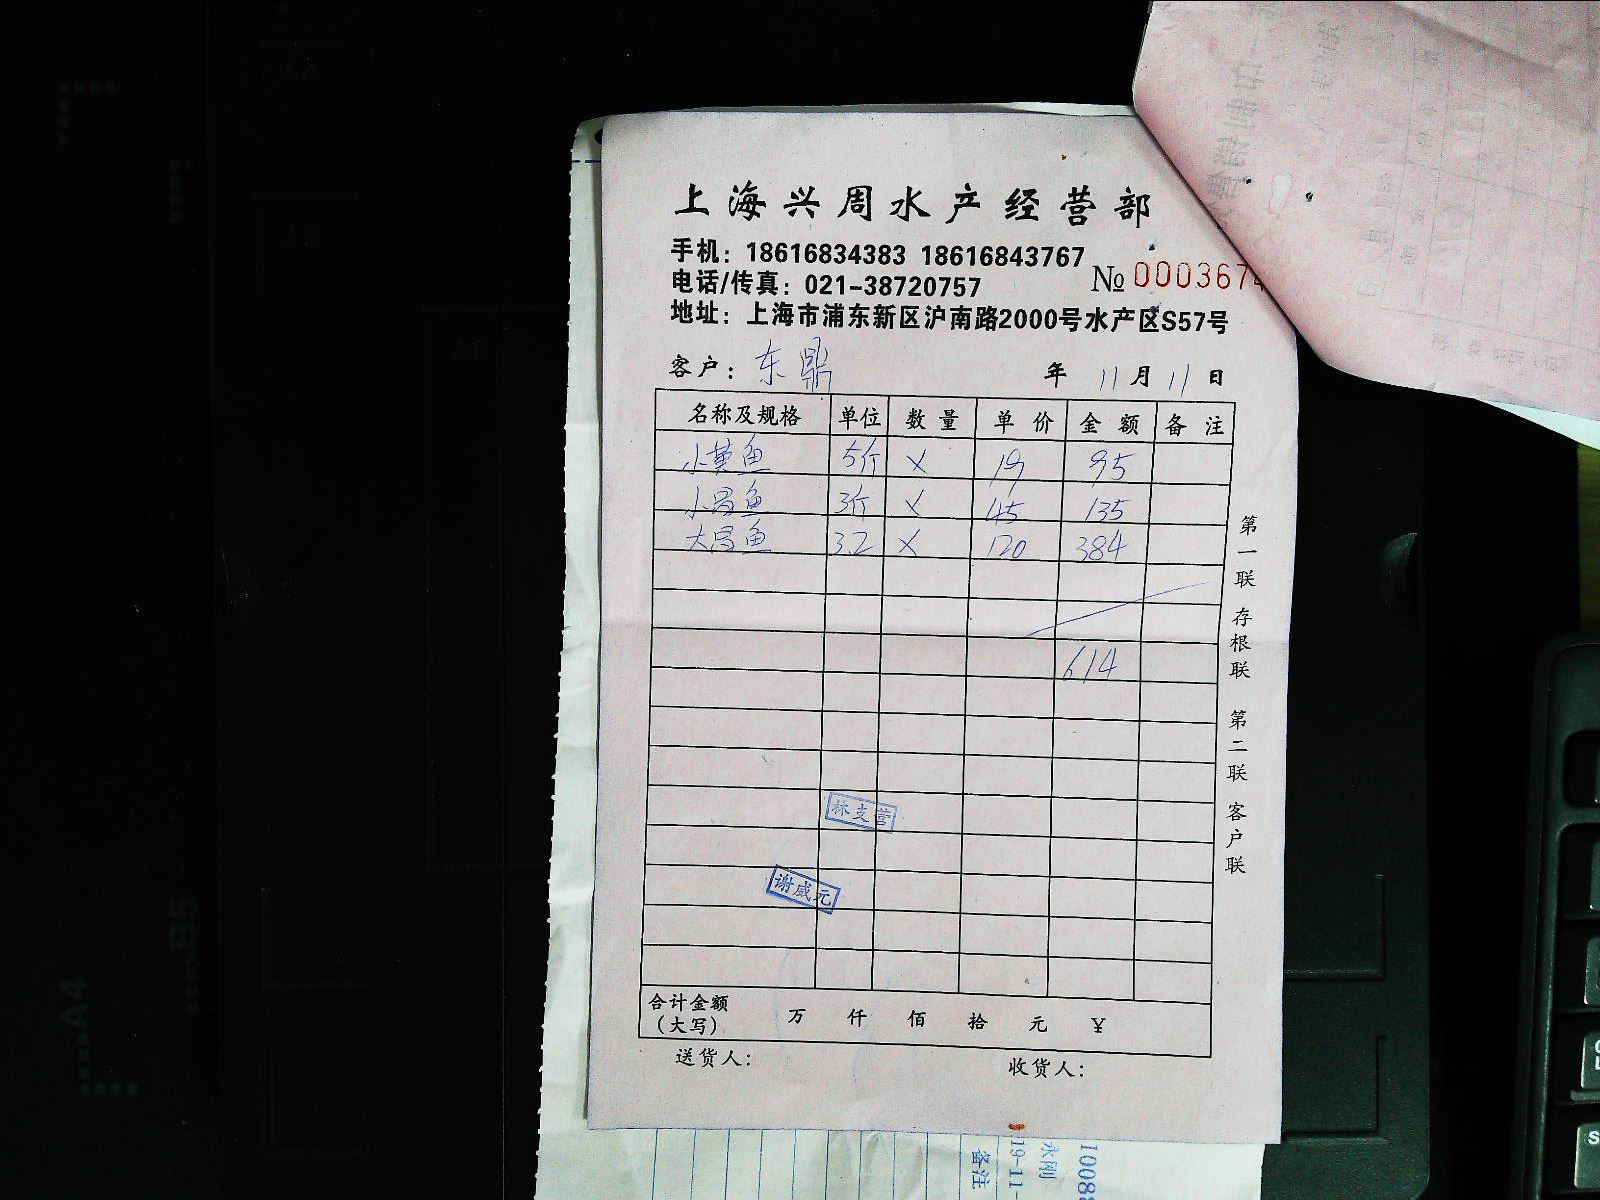 上海兴周水产经营部
手机：18616834383 18616843767
电话/传真：021-38720757
№ 000367
地址：上海市浦东新区沪南路2000号水产区S57号
客户：东鼎 年 11月11日
名称及规格 单位 数量 单价 金额 备注
小黄鱼 5斤 × 19 95
小昌鱼 3斤 × 45 135
大昌鱼 3.2 × 120 384
614
林支营
谢威元
合计金额
（大写） 万 仟 佰 拾 元 ¥
送货人： 收货人：
第一联 存根联 第二联 客户联
永刚
19-11-
备注
A4
B5